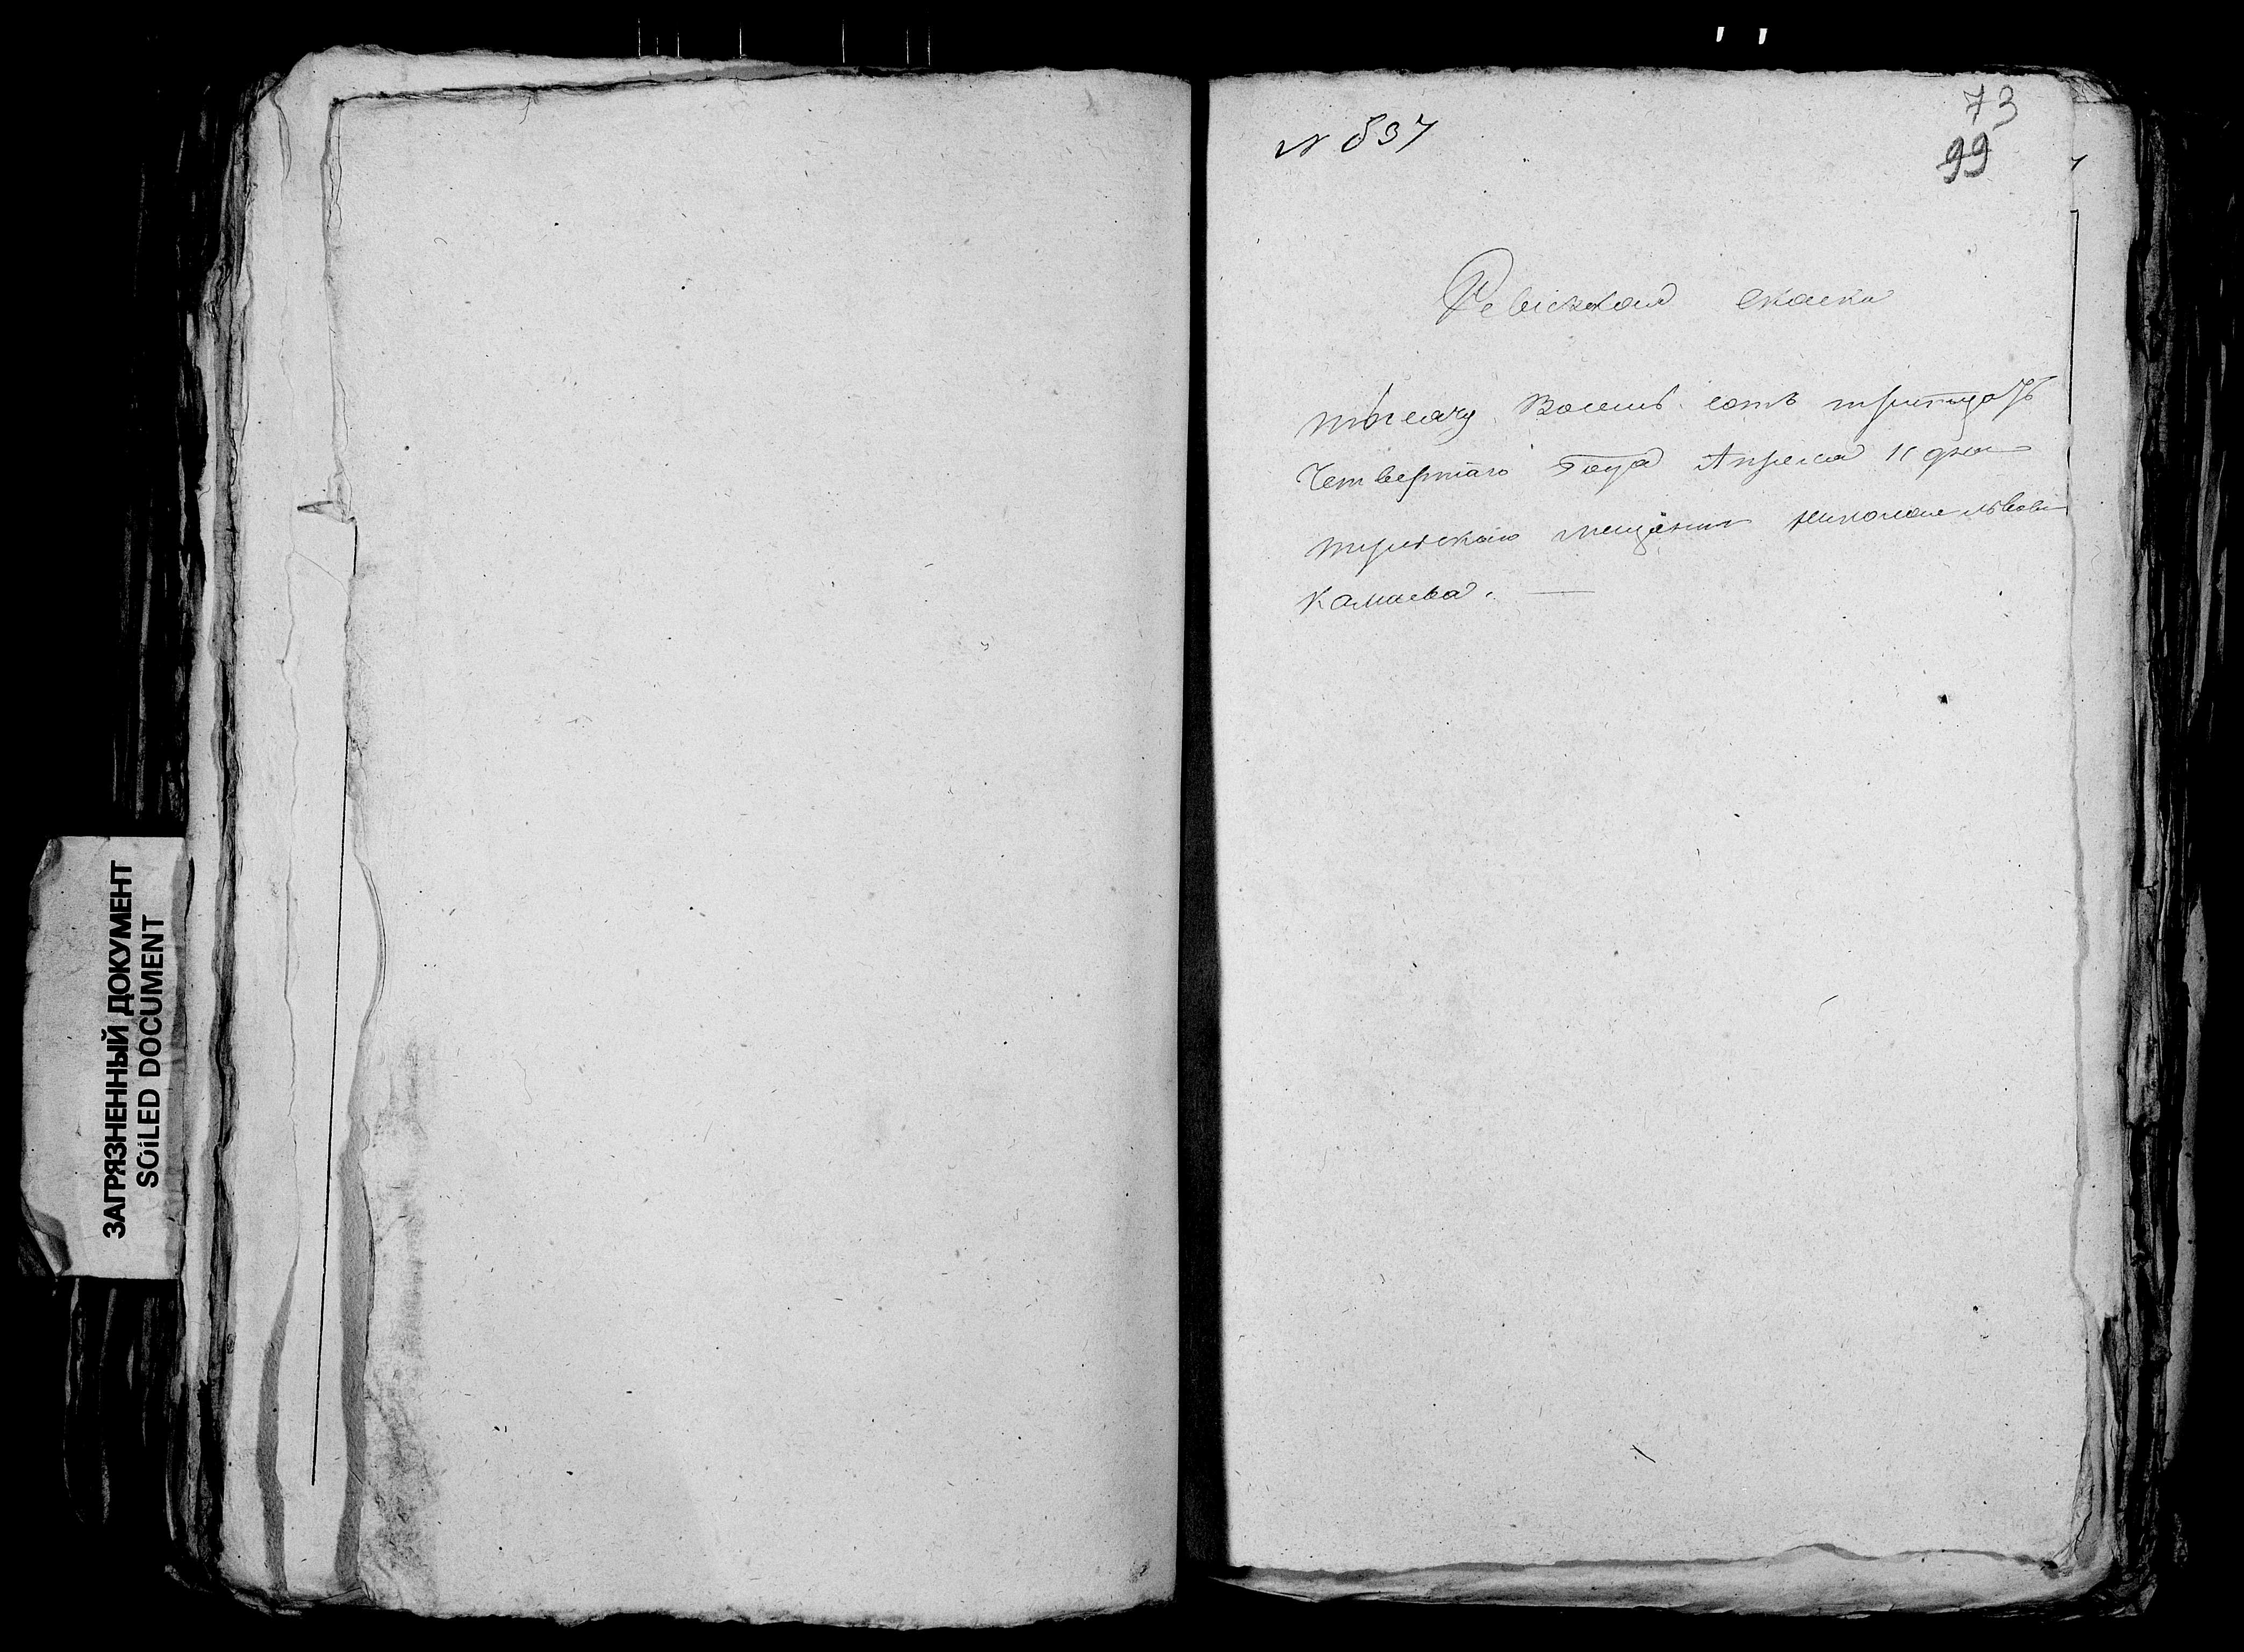 ЗАГРЯЗНЕННЫЙ ДОКУМЕНТ
SOiLED DOCUMENT
73
N 837
99
Ревизская скаска
тысячу Восемь сотъ тритцать
Четвертаго Года Апреля 11 дня
мещанина Николая Львова
Камаева. —